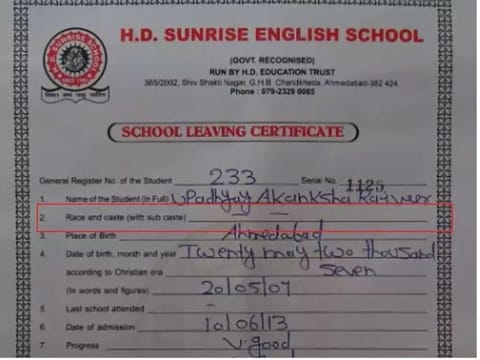 H.D. SUNRISE ENGLISH SCHOOL
(GOVT. RECOGNISED)
RUN BY H.D. EDUCATION TRUST
365/2002, Shiv Shakti Nagar, G.H.B. Chandkheda, Ahmedabad-382 424.
Phone : 079-2329 0065
SCHOOL LEAVING CERTIFICATE
General Register No. of the Student 233 Serial No. 1125
1. Name of the Student (in Full) Upadhyay Akanksha
2. Race and caste (with sub caste) — —
3. Place of Birth Ahmedabad
4. Date of birth, month and year Twenty may two thousand
according to Christian era Seven
(In words and figures) 20/05/07
5. Last school attended -
6. Date of admission 10/06/13
7. Progress V.good